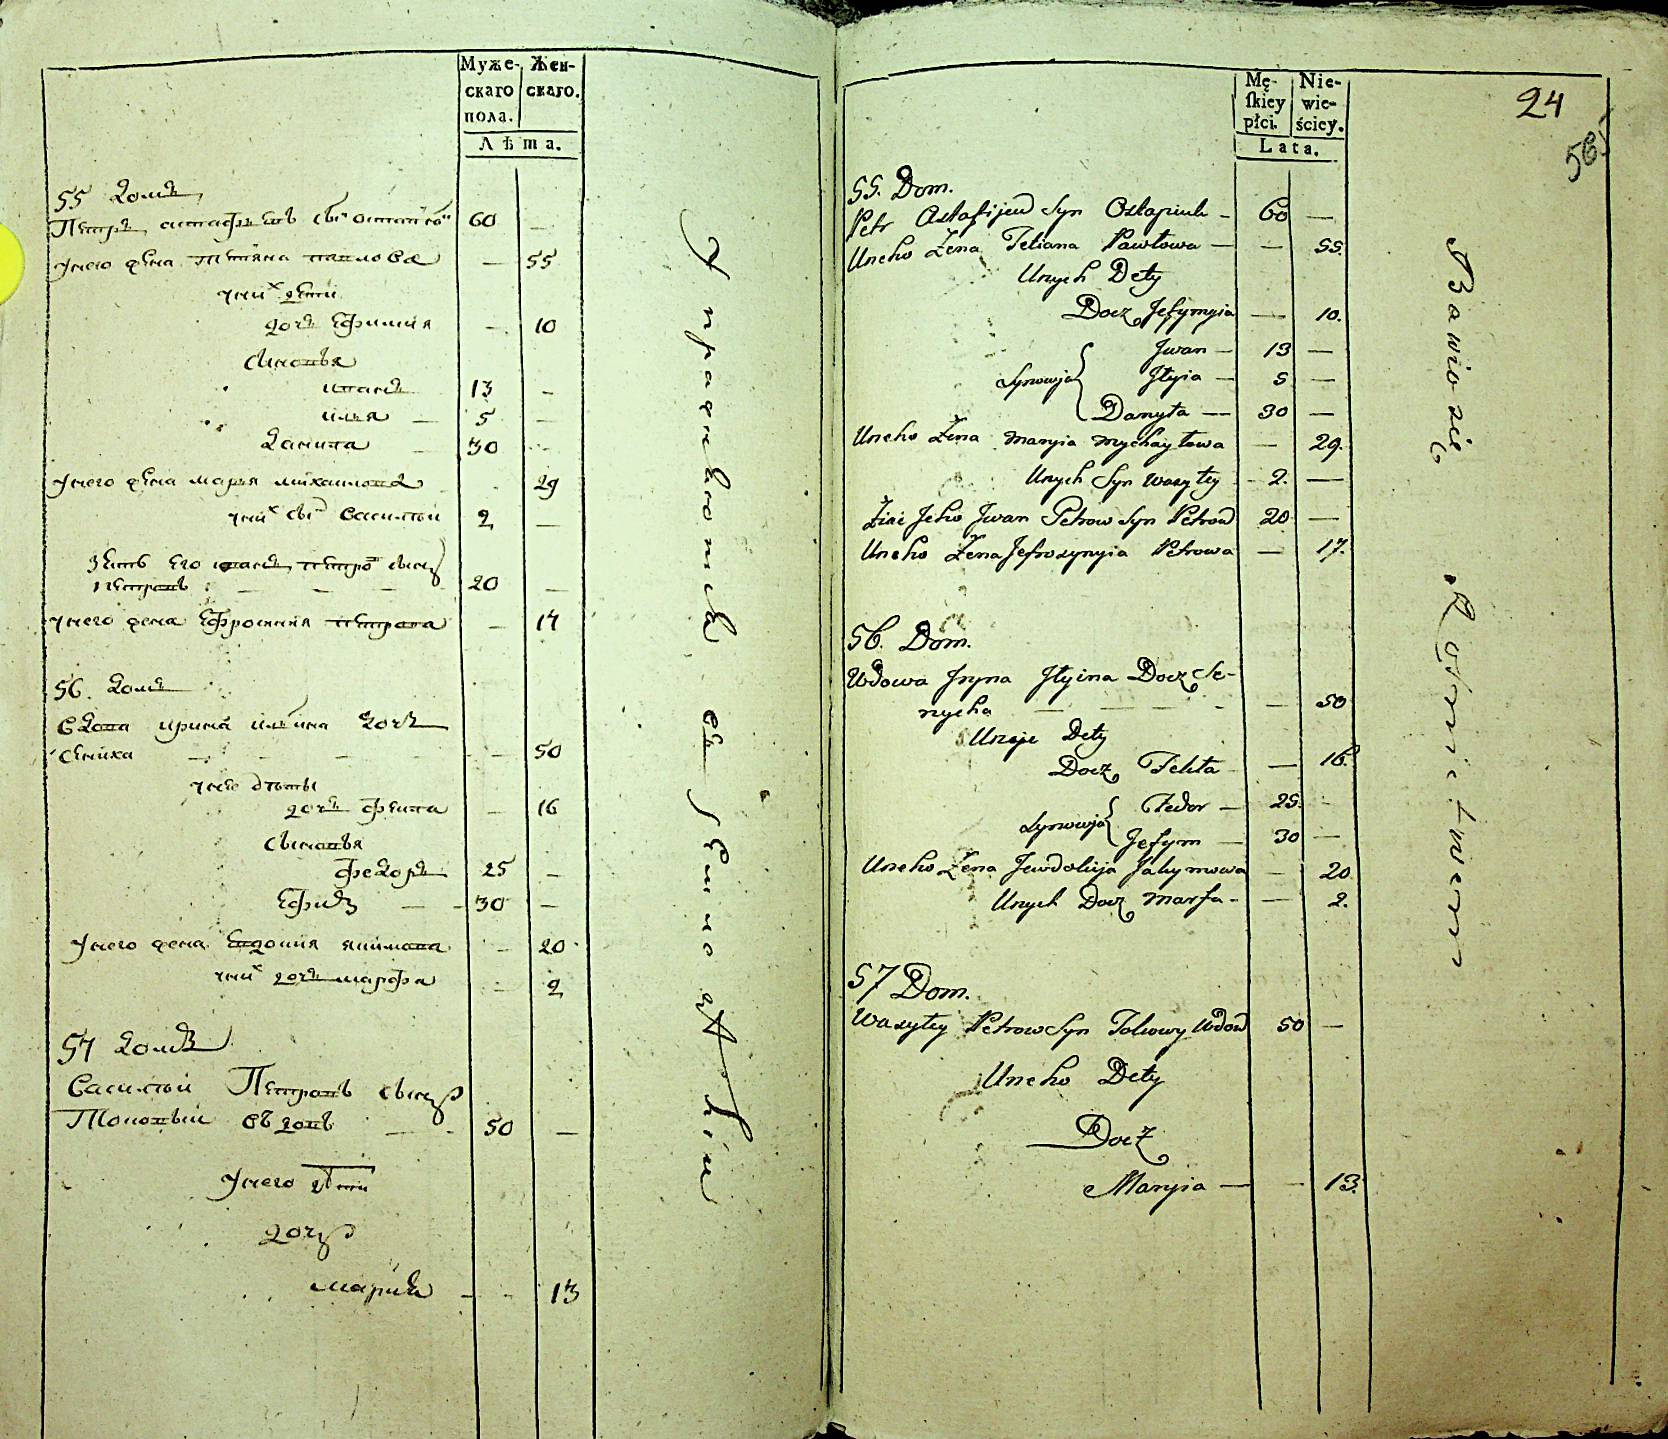 Муже-
скаго
пола.
Жен-
скаго.
Лѣта.
55 Домъ
Петръ астафьевъ сынъ остапюкъ 60 —
Унего жена татияна павлова — 55
уних дети
дочь Ефимия — 10
сыновья
иванъ 13 —
илья — 5 —
Данила — 30 —
Унего жена марья михаилова — 29
уних сын василий 2 —
Зять его иванъ петров сынъ
петровъ — — — 20 —
унего жена Ефросиния петрова — 17
56. Домъ
вдова ирина ильина дочь
сениха — — — — 50
унее дѣти
дочь фекла — 16
сыновья
федоръ 25 —
Ефимъ — 30 —
Унего жена Евдокия якимова — 20
уних дочь марфа — 2
57 домъ
василий Петровъ сынъ
Токовый вдовъ — 50 —
Унего дѣти
дочь
мария — — 13
Упражняются въ земледѣлии
24
56
Mę-
skiey
płci.
Nie-
wie-
ściey.
Lata.
55. Dom.
Petr Astafijew Syn Ostapiuk — 60 —
Uneho Żena Tetiana Pawłowa — — 55.
Unych Dety
Docz Jefymyia — 10.
Jwan — 13 —
Synowja Jłyia — 5 —
Danyła — 30 —
Uneho Żena Maryia Mychayłowa — 29.
Unych Syn Wasyłey — 2. —
Ziać Jeho Jwan Petrow Syn Petrow 20 —
Uneho Żena Jefrosynyia Petrowa — 17.
56. Dom.
Wdowa Jryna Jłyina Docz Se-
nycha — — — — — 50
Uneje Dety
Docz Fekła — — 16.
Fedor — 25. —
Synowja Jefym — 30 —
Uneho Żena Jewdokija Jakymowa — 20
Unych Docz Marfa — — 2.
57 Dom.
Wasyłey Petrow Syn Tokowy Wdow 50 —
Uneho Dety
Docz
Maryia — — 13.
Bawio się Rolnictwem